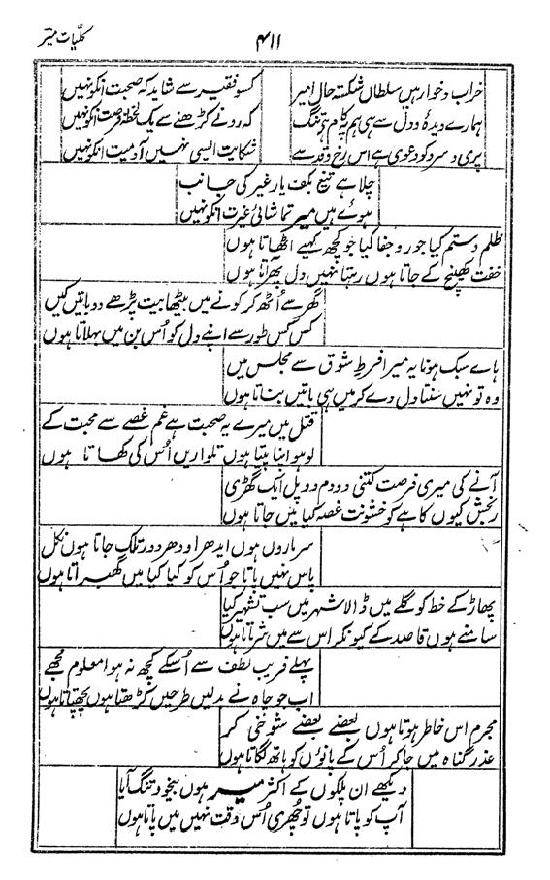 کلیات میر
۴۱۱
خراب وخوار ہیں سلطاں شکستہ حال امیر
کسو فقیر سے شاید کہ صحبت انکو نہیں
ہمارے دیدۂ و دل سے ہی ہم پہ کام ہے تنگ
کہ رونے کڑھنے سے یک لحظہ فرصت انکو نہیں
پری و سرو کو دعوی ہے اس رخ و قد سے
شکایت ایسی نہیں آدمیت انکو نہیں
چلا ہے تیغ بکف یار غیر کی جانب
ہوئے ہیں میر تماشائی غیرت انکو نہیں
ظلم و ستم کیا جور و جفا کیا جو کچھ کہیے اٹھاتا ہوں
خفت کھینچ کے جاتا ہوں رہتا نہیں دل پھر آتا ہوں
گھر سے اُٹھ کر کونے میں بیٹھا بیت پڑھے دو باتیں کیں
کس کس طور سے اپنے دل کو اُس بن میں بہلاتا ہوں
ہاے سبک ہونا یہ میرا فرط شوق سے مجلس میں
وہ تو نہیں سنتا دل دے کر میں ہی باتیں بناتا ہوں
قتل میں میرے یہ صحبت ہے غم غصے سے محبت کے
لوہو اپنا پیتا ہوں تلواریں اُس کی کھاتا ہوں
آنے کی میری فرصت کتنی دو دم دو پل ایک گھڑی
رنجش کیوں کا ہے کو خشونت غصہ کیا میں جاتا ہوں
سر ماروں ہوں ایدھر اودھر دور تلک جاتا ہوں نکل
پاس نہیں پاتا جو اُس کو کیا کیا میں گھبراتا ہوں
پھاڑ کے خط کو گلے میں ڈالا شہر میں سب تشہیر کیا
سامنے ہوں قاصد کے کیونکر اس سے میں شرماتا ہوں
پہلے فریب لطف سے اُسکے کچھ نہ ہوا معلوم مجھے
اب جو چاہ نے بدلیں طرحیں کڑھتا ہوں پچھتاتا ہوں
مجرم اس خاطر ہوتا ہوں بعضے بعضے شوخی کر
عذر گناہ میں جا کر اُس کے پانوں کو ہاتھ لگاتا ہوں
دیکھے ان پلکوں کے اکثر میر ہوں بیخود تنگ آیا
آپ کو پاتا ہوں تو چھری اُس وقت نہیں میں پاتا ہوں